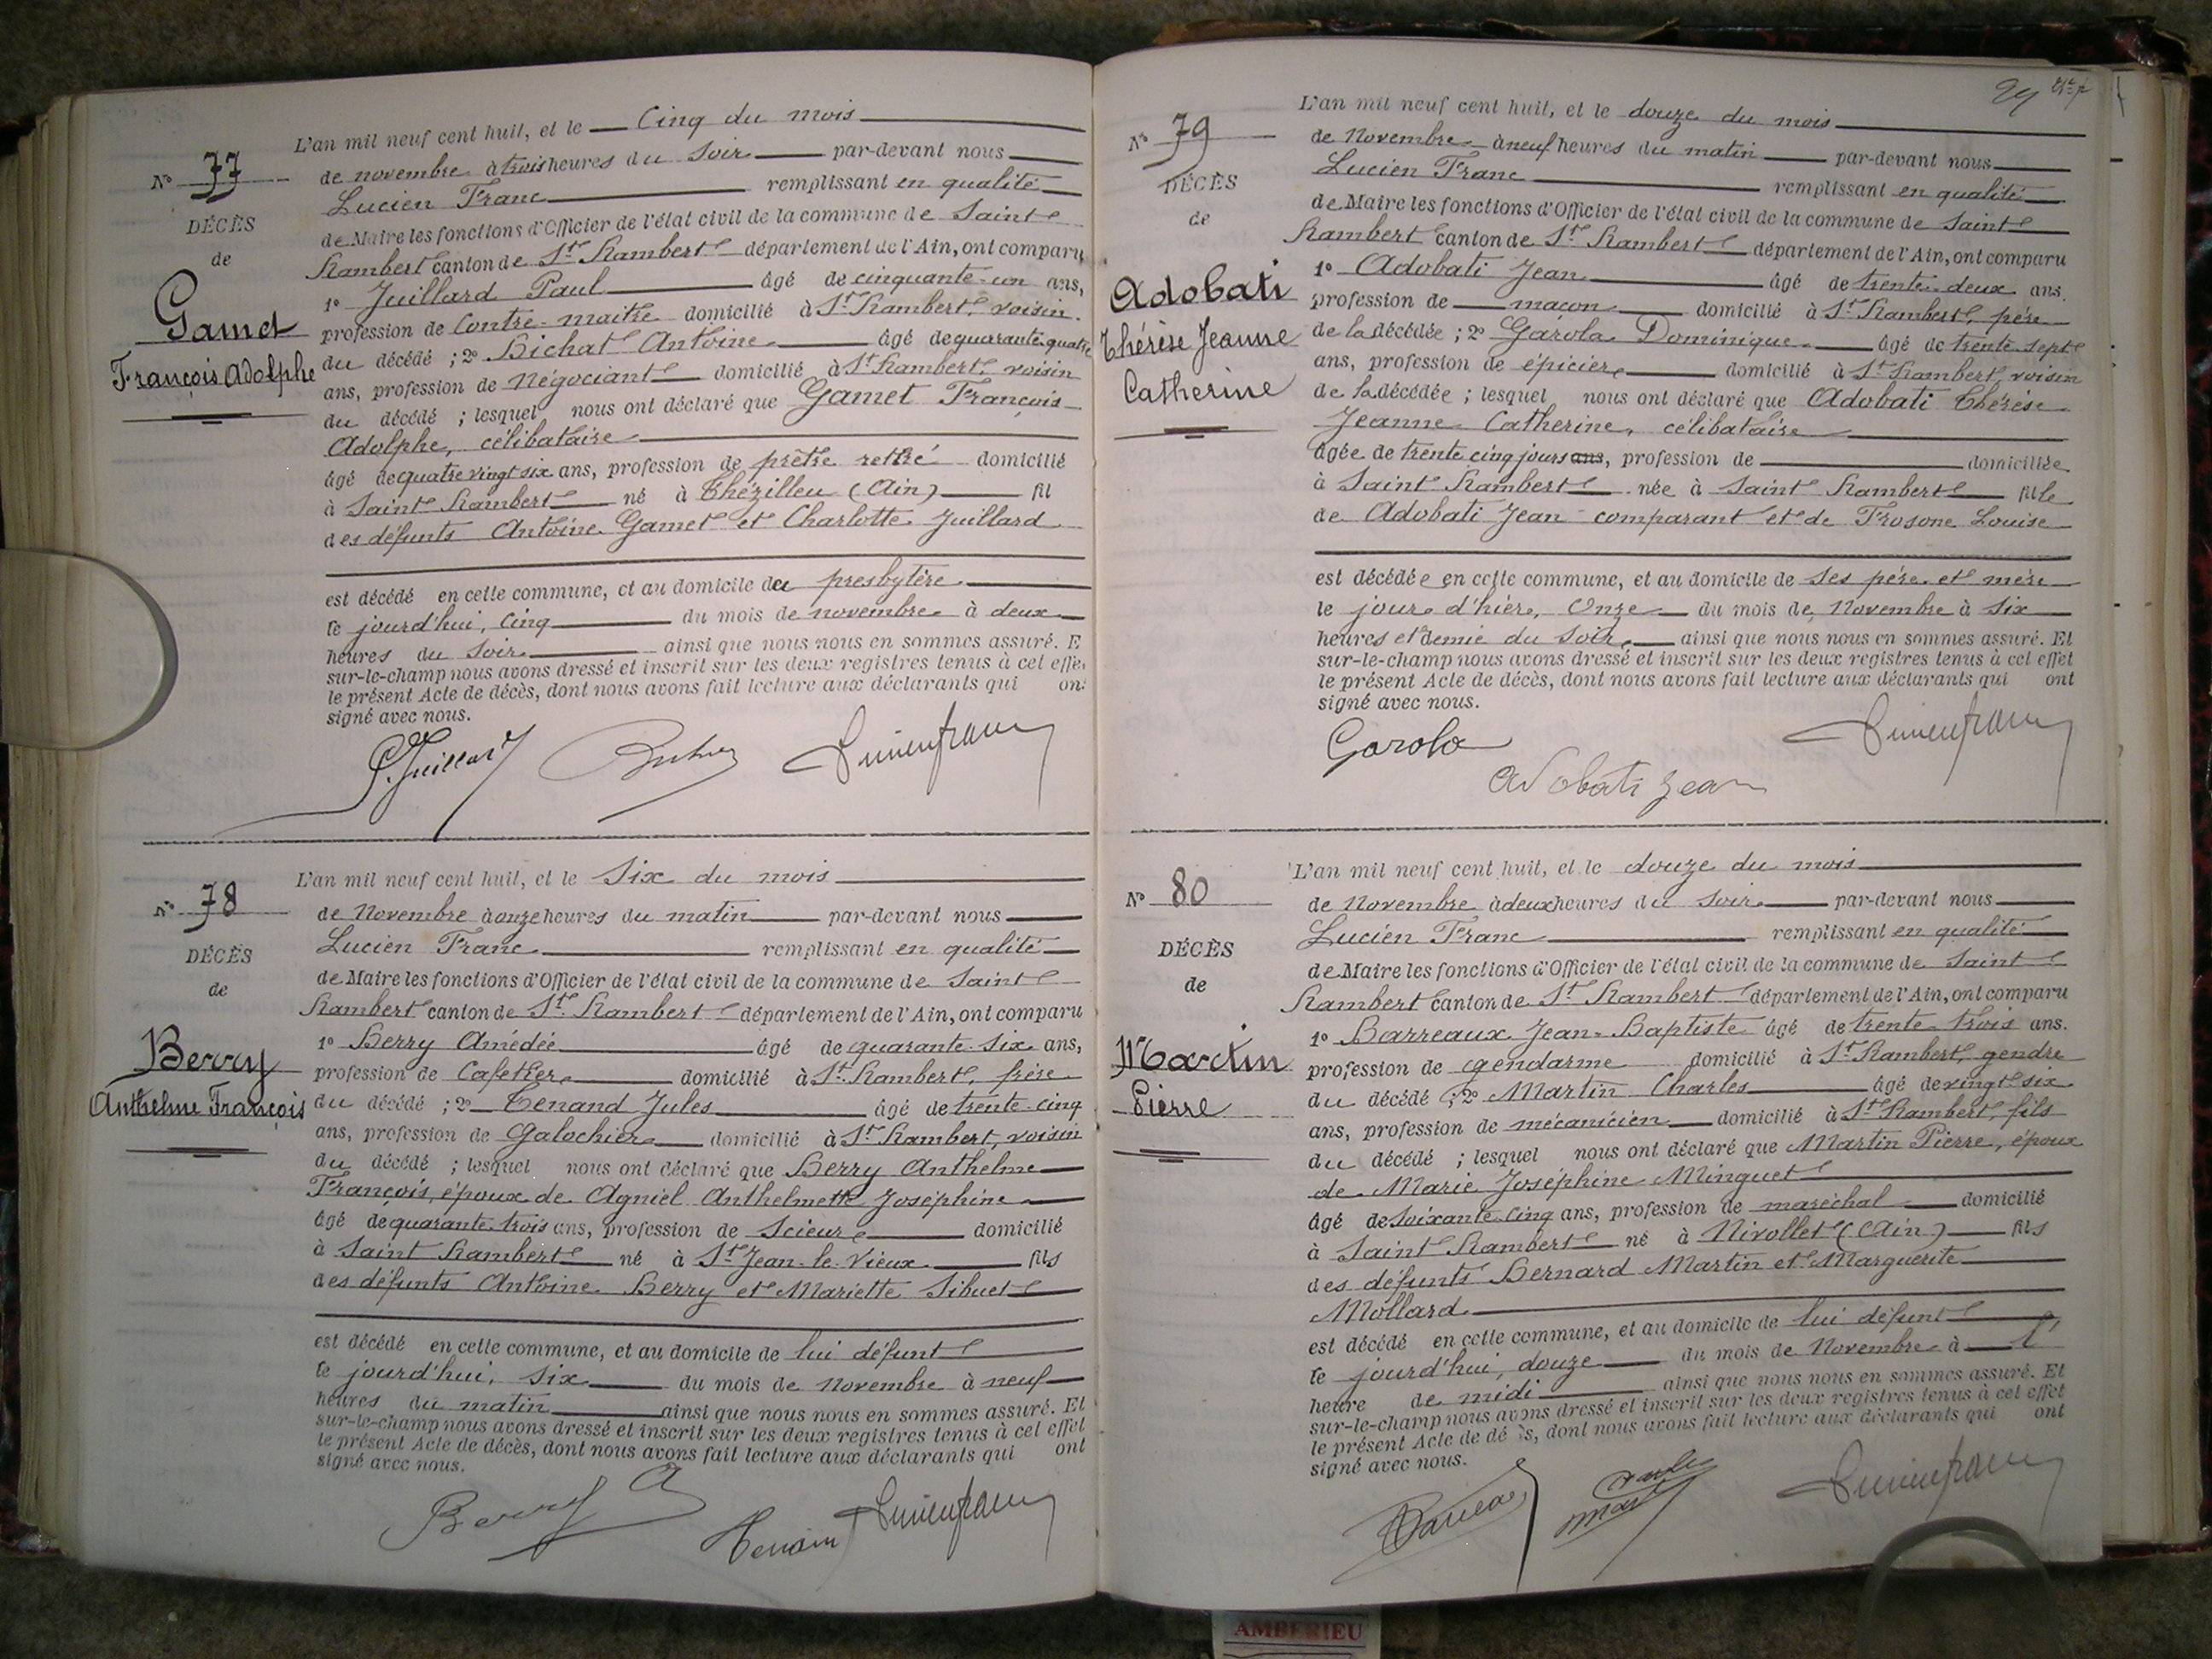 L'an mil neuf cent huit, et le Cinq du mois
N° 77
de novembre à trois heures du soir par-devant nous
Lucien Franc remplissant en qualité
DÉCÈS
de Maire les fonctions d'Officier de l'état civil de la commune de Saint
de
Rambert canton de St Rambert département de l'Ain, ont comparu
1° Juillard Paul âgé de cinquante-un ans,
Gamet
profession de Contre-maitre domicilié à St Rambert, voisin
François Adolphe
du décédé ; 2° Bichat Antoine âgé de quarante quatre
ans, profession de Négociant domicilié à St Rambert, voisin
du décédé ; lesquel nous ont déclaré que Gamet François
Adolphe, célibataire
âgé de quatre vingt six ans, profession de prêtre retiré domicilié
à Saint Rambert né à Thézillieu (Ain) fil
des défunts Antoine Gamet et Charlotte Juillard
est décédé en cette commune, et au domicile du presbytère
le jourd'hui, Cinq du mois de novembre à deux
heures du soir ainsi que nous nous en sommes assuré. E
sur-le-champ nous avons dressé et inscrit sur les deux registres tenus à cet effe
le présent Acte de décès, dont nous avons fait lecture aux déclarants qui ont
signé avec nous.
P. Juillard
Lucien Franc
L'an mil neuf cent huit, et le Six du mois
N° 78
de Novembre à onze heures du matin par-devant nous
Lucien Franc remplissant en qualité
DÉCÈS
de Maire les fonctions d'Officier de l'état civil de la commune de Saint
de
Rambert canton de St Rambert département de l'Ain, ont comparu
1° Berry Amédée âgé de quarante-six ans,
Berry
profession de Cafetier domicilié à St Rambert, frère
Anthelme François
du décédé ; 2° Tenand Jules âgé de trente-cinq
ans, profession de Galochier domicilié à St Rambert, voisin
du décédé ; lesquel nous ont déclaré que Berry Anthelme
François, époux de Agniel Anthelmette Joséphine
âgé de quarante trois ans, profession de Scieur domicilié
à Saint Rambert né à St Jean-le-Vieux fils
des défunts Antoine Berry et Mariette Sibuet
est décédé en cette commune, et au domicile de lui défunt
le jourd'hui, six du mois de Novembre à neuf
heures du matin ainsi que nous nous en sommes assuré. Et
sur-le-champ nous avons dressé et inscrit sur les deux registres tenus à cet effet
le présent Acte de décès, dont nous avons fait lecture aux déclarants qui ont
signé avec nous.
Berry A
Tenand
Lucien Franc
L'an mil neuf cent huit, et le douze du mois
N° 79
de Novembre à neuf heures du matin par-devant nous
Lucien Franc remplissant en qualité
DÉCÈS
de Maire les fonctions d'Officier de l'état civil de la commune de Saint
de
Rambert canton de St Rambert département de l'Ain, ont comparu
1° Adobati Jean âgé de trente-deux ans.
Adobati
profession de maçon domicilié à St Rambert, père
Thérèse Jeanne
de la décédée ; 2° Garola Dominique âgé de trente sept
Catherine
ans, profession de épicier domicilié à St Rambert, voisin
de la décédée ; lesquel nous ont déclaré que Adobati Thérèse
Jeanne Catherine, célibataire
âgée de trente cinq jours ans, profession de domiciliée
à Saint Rambert née à Saint Rambert fille
de Adobati Jean comparant et de Frosone Louise
est décédée en cette commune, et au domicile de ses père et mère
le jour d'hier, Onze du mois de Novembre à six
heures et demie du soir, ainsi que nous nous en sommes assuré. Et
sur-le-champ nous avons dressé et inscrit sur les deux registres tenus à cet effet
le présent Acte de décès, dont nous avons fait lecture aux déclarants qui ont
signé avec nous.
Garola
Lucien Franc
Adobati Jean
L'an mil neuf cent huit, et le douze du mois
N° 80
de Novembre à deux heures du soir par-devant nous
Lucien Franc remplissant en qualité
DÉCÈS
de Maire les fonctions d'Officier de l'état civil de la commune de Saint
de
Rambert canton de St Rambert département de l'Ain, ont comparu
1° Barreaux Jean-Baptiste âgé de trente trois ans.
Martin
profession de gendarme domicilié à St Rambert, gendre
Pierre
du décédé ; 2° Martin Charles âgé de vingt six
ans, profession de mécanicien domicilié à St Rambert, fils
du décédé ; lesquel nous ont déclaré que Martin Pierre, époux
de Marie Joséphine Minguet
âgé de soixante cinq ans, profession de maréchal domicilié
à Saint Rambert né à Nivollet (Ain) fils
des défunts Bernard Martin et Marguerite
Mollard
est décédé en cette commune, et au domicile de lui défunt
le jourd'hui, douze du mois de Novembre à l'
heure de midi ainsi que nous nous en sommes assuré. Et
sur-le-champ nous avons dressé et inscrit sur les deux registres tenus à cet effet
le présent Acte de décès, dont nous avons fait lecture aux déclarants qui ont
signé avec nous.
Barreaux
Charles
Martin
Lucien Franc
AMBERIEU